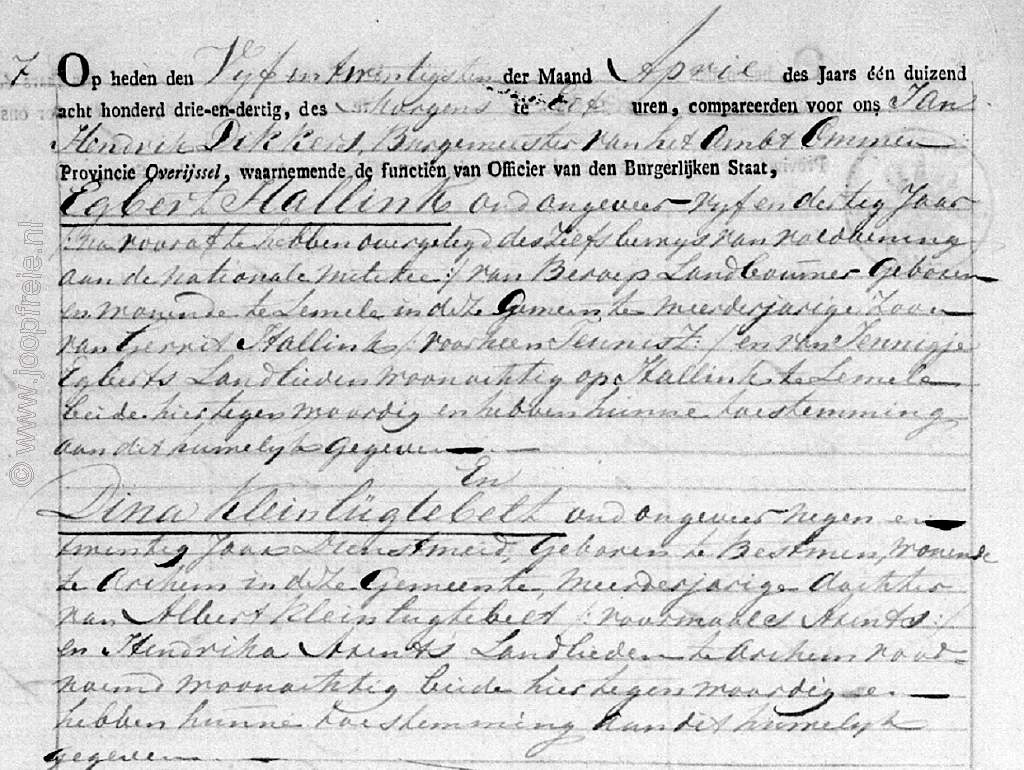 7 Op heden den Vyf en twentigsten der Maand April des Jaars één duizend
acht honderd drie-en-dertig, des Morgens te elf uren, compareerden voor ons Jan
Hendrik Dikkers, Burgemeester van het Ambt Ommen
Provincie Overijssel, waarnemende de functiën van Officier van den Burgerlijken Staat,
Egbert Hallink oud ongeveer vyf en dertig Jaar
/:na vooraf te hebben overgelegd des zelfs bewys van voldoening
aan de nationale melitie:/ van Beroep Landbouwer geboren
en wonende te Lemele in deze Gemeente meerderjarige Zoon
van Gerrit Hallink /: voorheen Teunisz:/ en van Jennigje
Egberts Landlieden woonachtig op Hallink te Lemele
beide hier tegenwoordig en hebben hunne toestemming
aan dit huwelyk gegeven
En
Dina Klein Lügtebelt oud ongeveer negen en
twintig Jaar Dienstmeid, Geboren te Bestmen, wonende
te Archem in deze Gemeente, meerderjarige dochter
van Albert Klein Lugtebelt /: voormaals Arents:/
en Hendrika Arents Landlieden te Archem voor
noemd woonachtig beide hier tegenwoordig en
hebben hunne toestemming aan dit huwelyk
gegeven
© www.joopfreie.nl